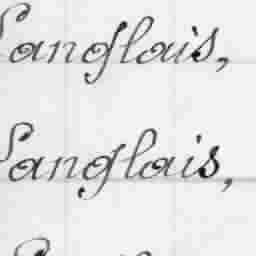 Langlais,
Langlais,